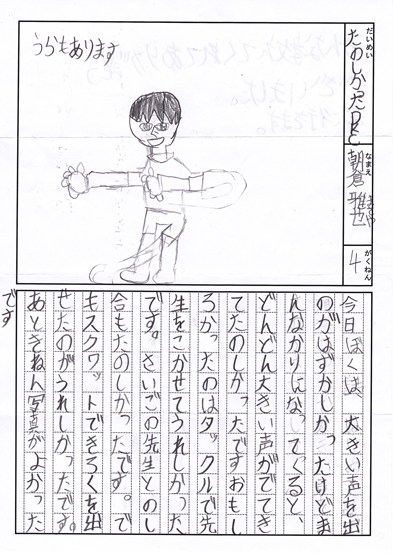 だいめい
たのしかったDRC
なまえ
朝倉 雅也
まさや
がくねん
4
うらもあります
今日ぼくは、大きい声を出
のがはずかしかったけどま
んなかりになってくると、
どんどん大きい声がでてき
てたのしかったですおもし
ろかったのはタックルで先
生をこかせてうれしかった
です。さいごの先生とのし
合もたのしかったです。で
もスクワットできろくを出
せたのがうれしかったです。
あときねん写真がよかった
です